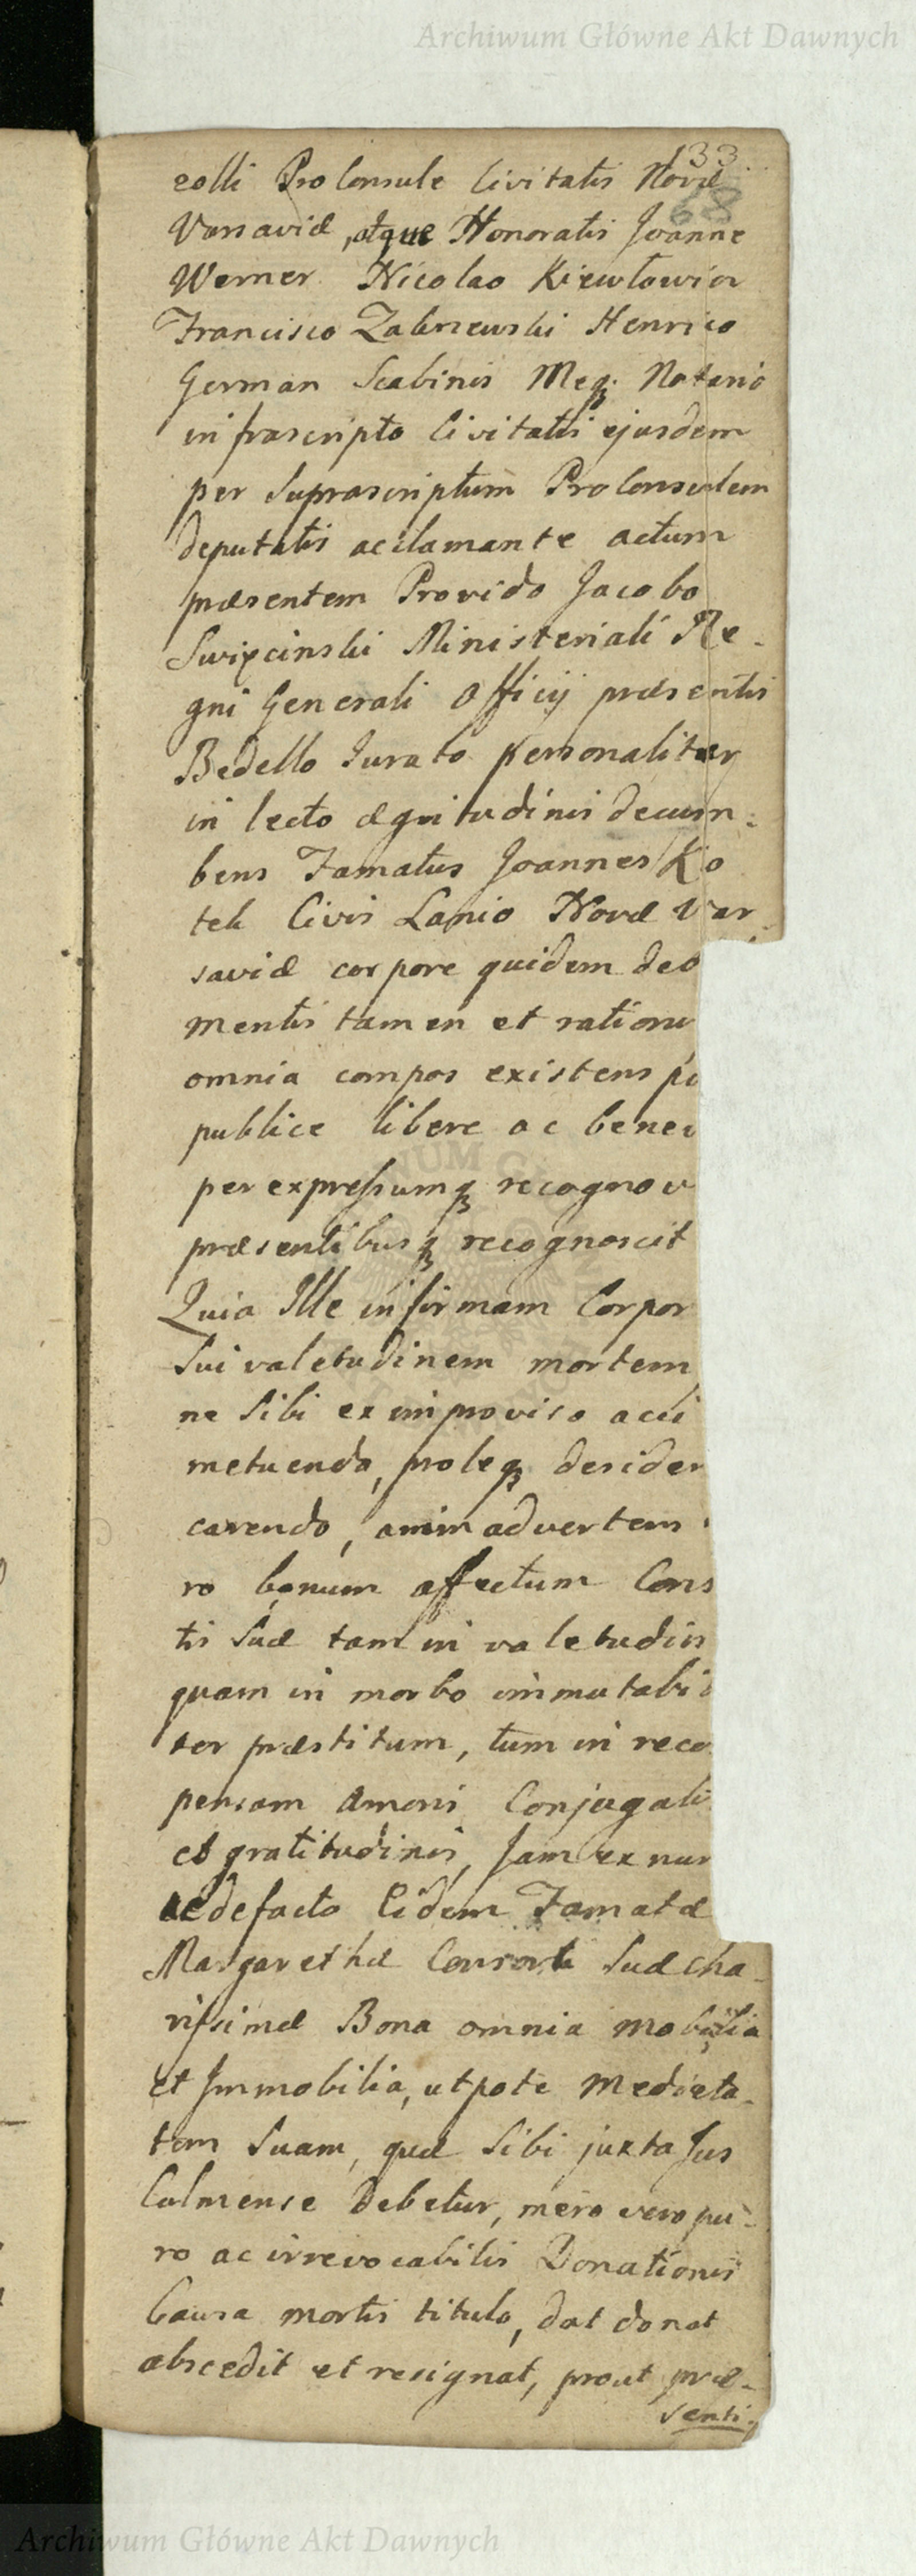 Archiwum Główne Akt Dawnych
33
68
eolli Pro Consule Civitatis Novæ
Varsaviæ, atque Honoratis Joanne
Werner Nicolao Kiewłowicz
Francisco Zakrzewski Henrico
German Scabinis Meq; Notario
infrascripto Civitatis ejusdem
per Suprascriptum ProConsulem
deputatis acclamante actum
præsentem Provido Jacobo
Swięcinski Ministeriali Re-
gni Generali Officij præsentis
Bedello Jurato personaliter
in lecto ægritudinis decum-
bens Famatus Joannes Ko
tek Civis Lanio Novæ Var
saviæ corpore quidem deb
mentis tamen et rationis
omnia compos existens pa
publice libere ac benev
per expressumq; recognov
præsentibusq; recognoscit
Quia Ille infirmam Corpor
Sui valetudinem mortem
ne Sibi ex improviso acci
metuendo, proleq; desider
carendo, animadvertens
ro bonum affectum Cons
tis Suæ tam in valetudin
quam in morbo immutabi
ter præstitum, tum in reco
pensam Amoris Conjugali
et gratitudinis, Jam ex nun
ac defacto Eidem Famatæ
Margarethæ Consorti Suæ cha-
rissimæ Bona omnia mobilia
et Immobilia, utpote Medieta-
tem Suam, quæ Sibi juxta Jus
Culmense Debetur, mero vero pu-
ro ac irrevocabilis Donationis
Causa mortis titulo, dat donat
abscedit et resignat, prout præ-
senti
Archiwum Główne Akt Dawnych